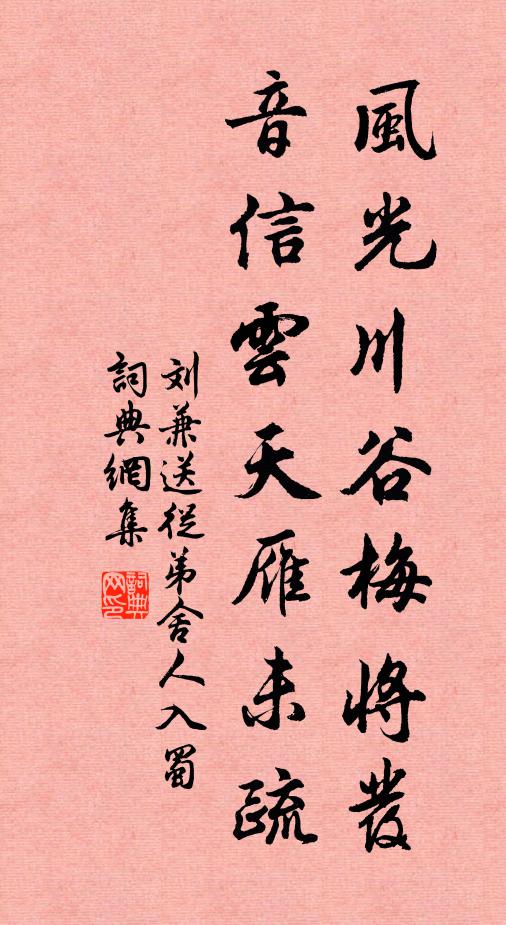 風光川谷梅將發
音信雲天雁未疏
刘兼送從弟舍人入蜀
詞典網集
詞典网印